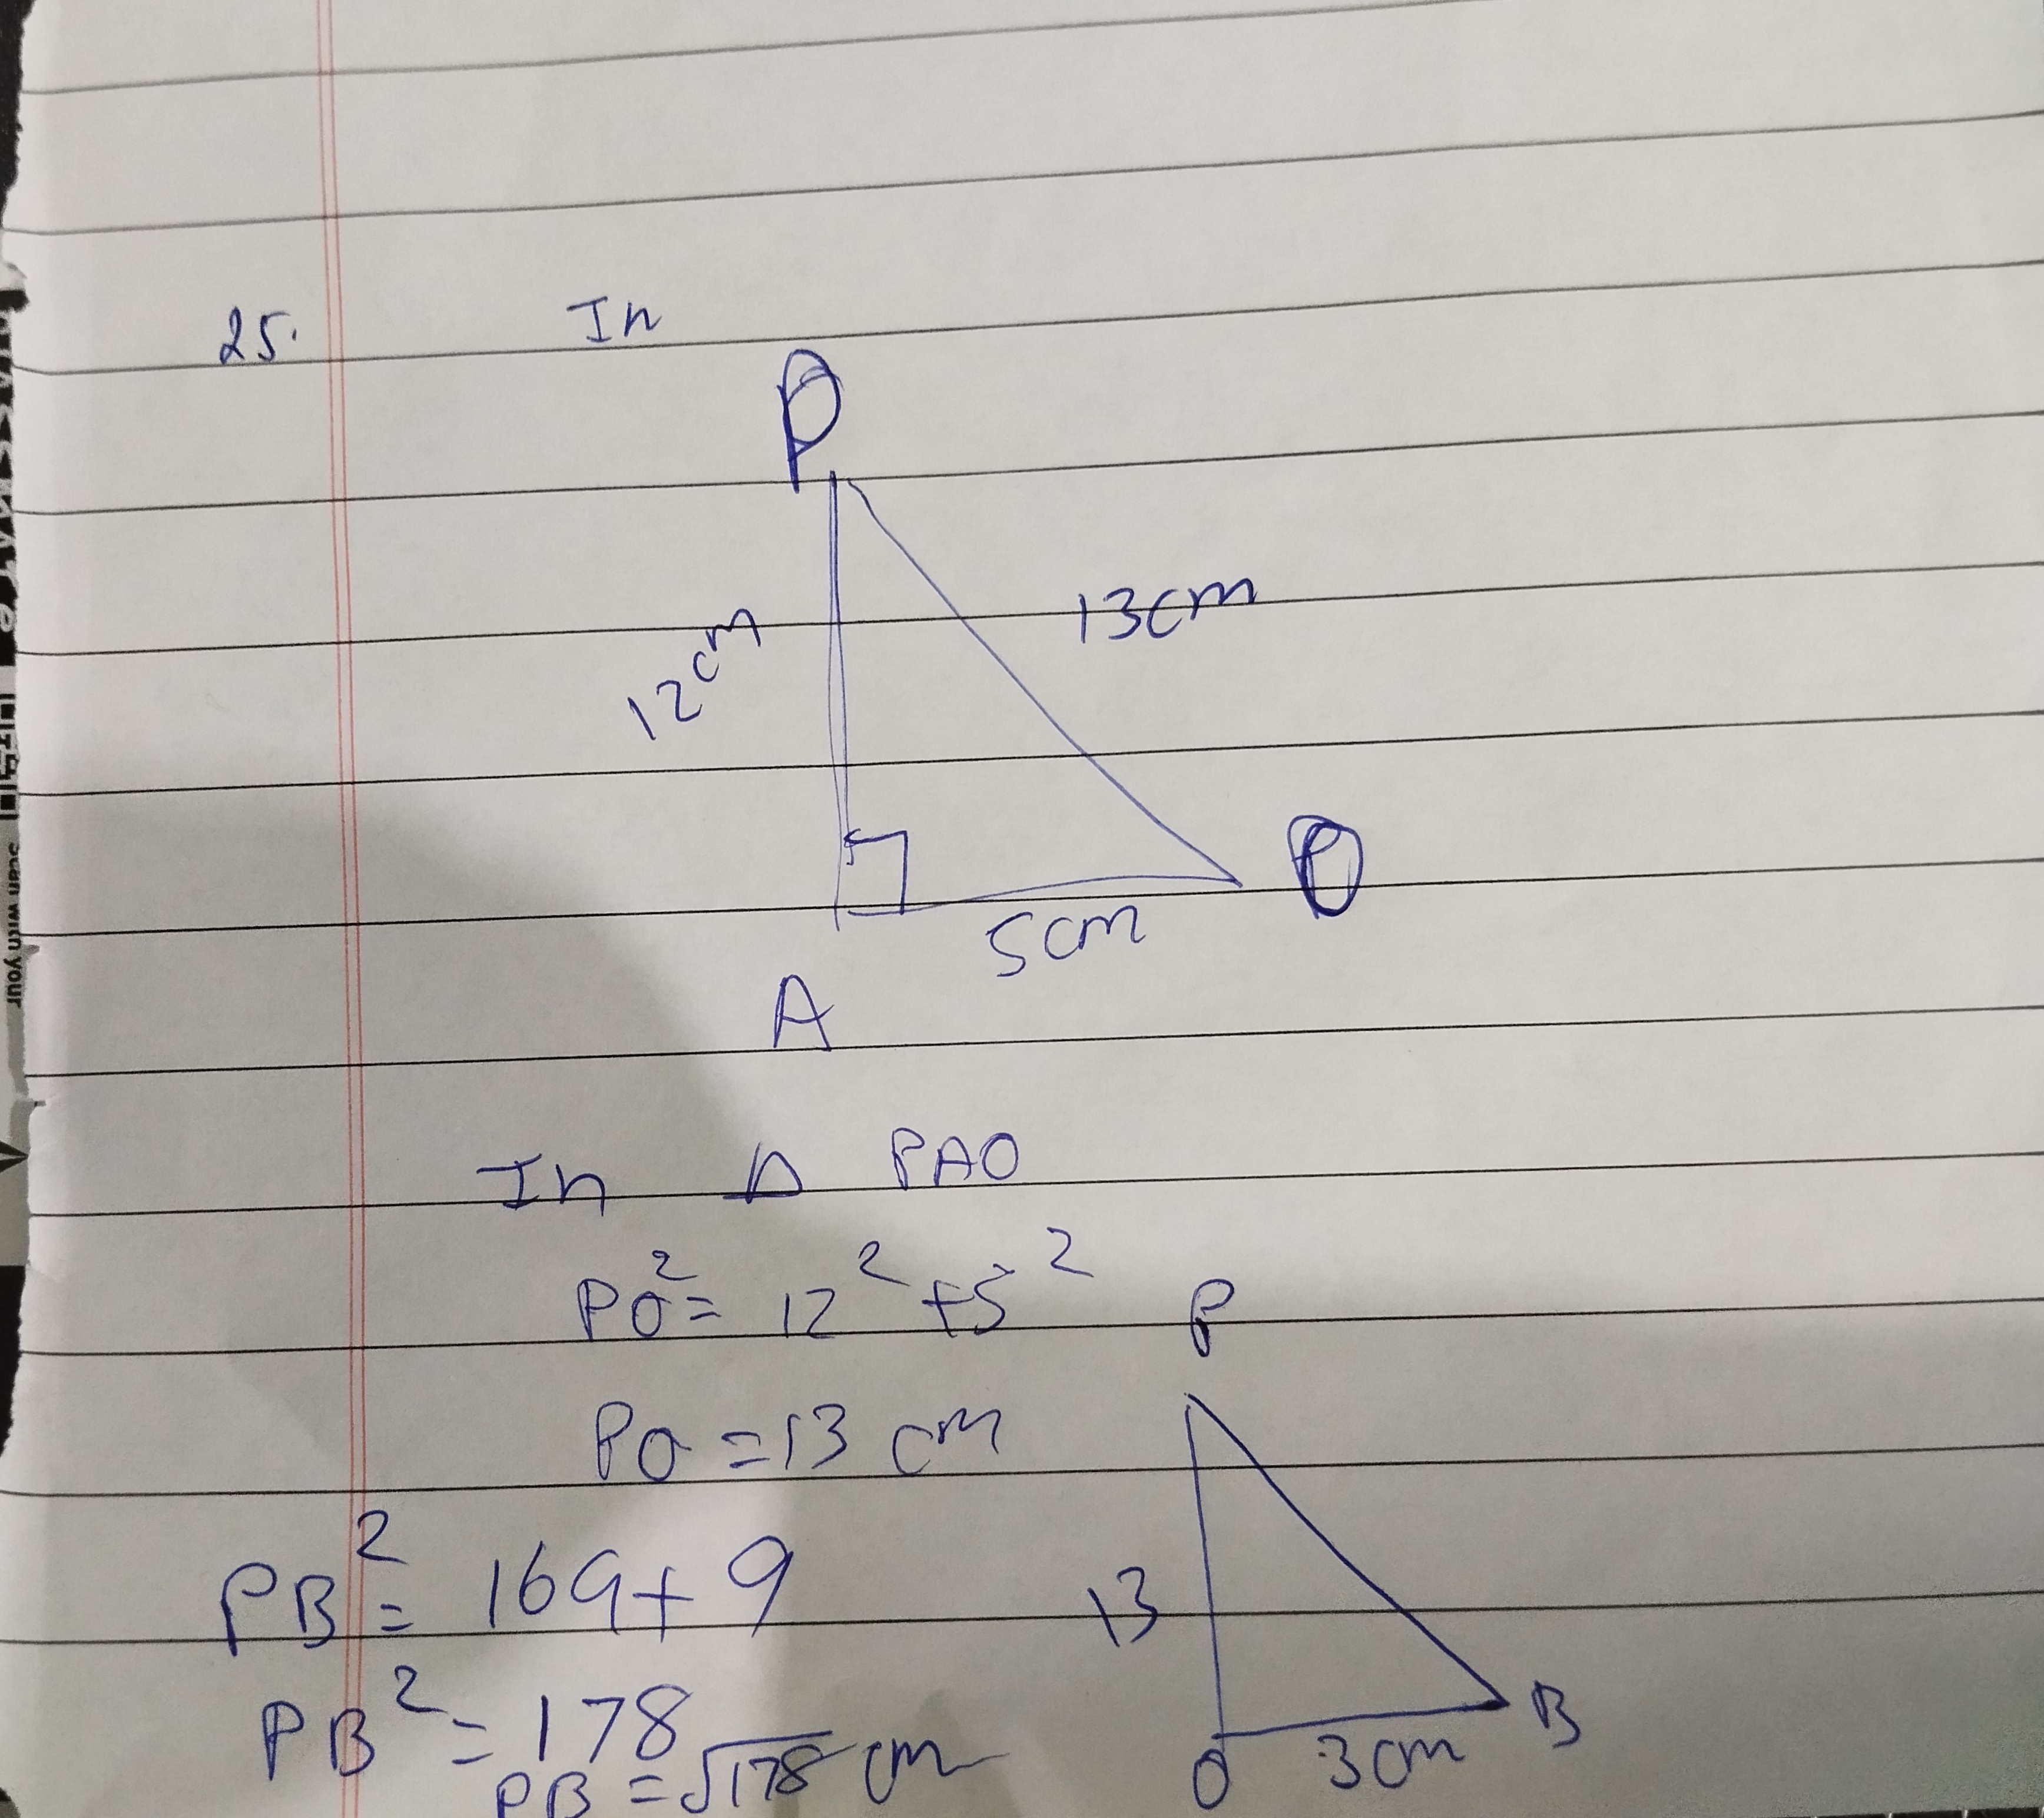 25. In
P
12cm 13cm
O
5cm
A
In Δ PAO
PO² = 12² + 5²
P
PO = 13 cm
PB² = 169 + 9
13
PB² = 178
B
O 3cm
PB = √178 cm
scan with your